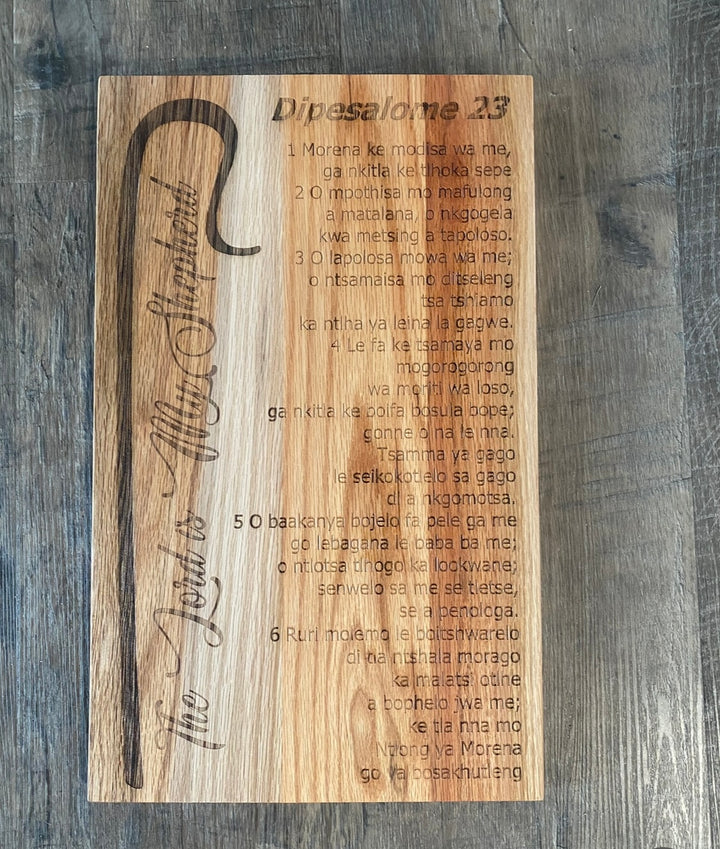 The Lord is My Shepherd
Dipesalome 23
1 Morena ke modisa wa me,
ga nkitla ke tlhoka sepe
2 O mpothisa mo mafulong
a matalana, o nkgogela
kwa metsing a tapoloso.
3 O lapolosa mowa wa me;
o ntsamaisa mo ditseleng
tsa tshiamo
ka ntlha ya leina la gagwe.
4 Le fa ke tsamaya mo
mogorogorong
wa moriti wa loso,
ga nkitla ke boifa bosula bope;
gonne o na le nna.
Tsamma ya gago
le seikokotlelo sa gago
di a nkgomotsa.
5 O baakanya bojelo fa pele ga me
go lebagana le baba ba me;
o ntlotsa tlhogo ka lookwane;
senwelo sa me se tletse,
se a penologa.
6 Ruri molemo le boitshwarelo
di na ntshala morago
ka malatsi otlne
a bophelo jwa me;
ke tla nna mo
Ntlong ya Morena
go ya bosakhutleng